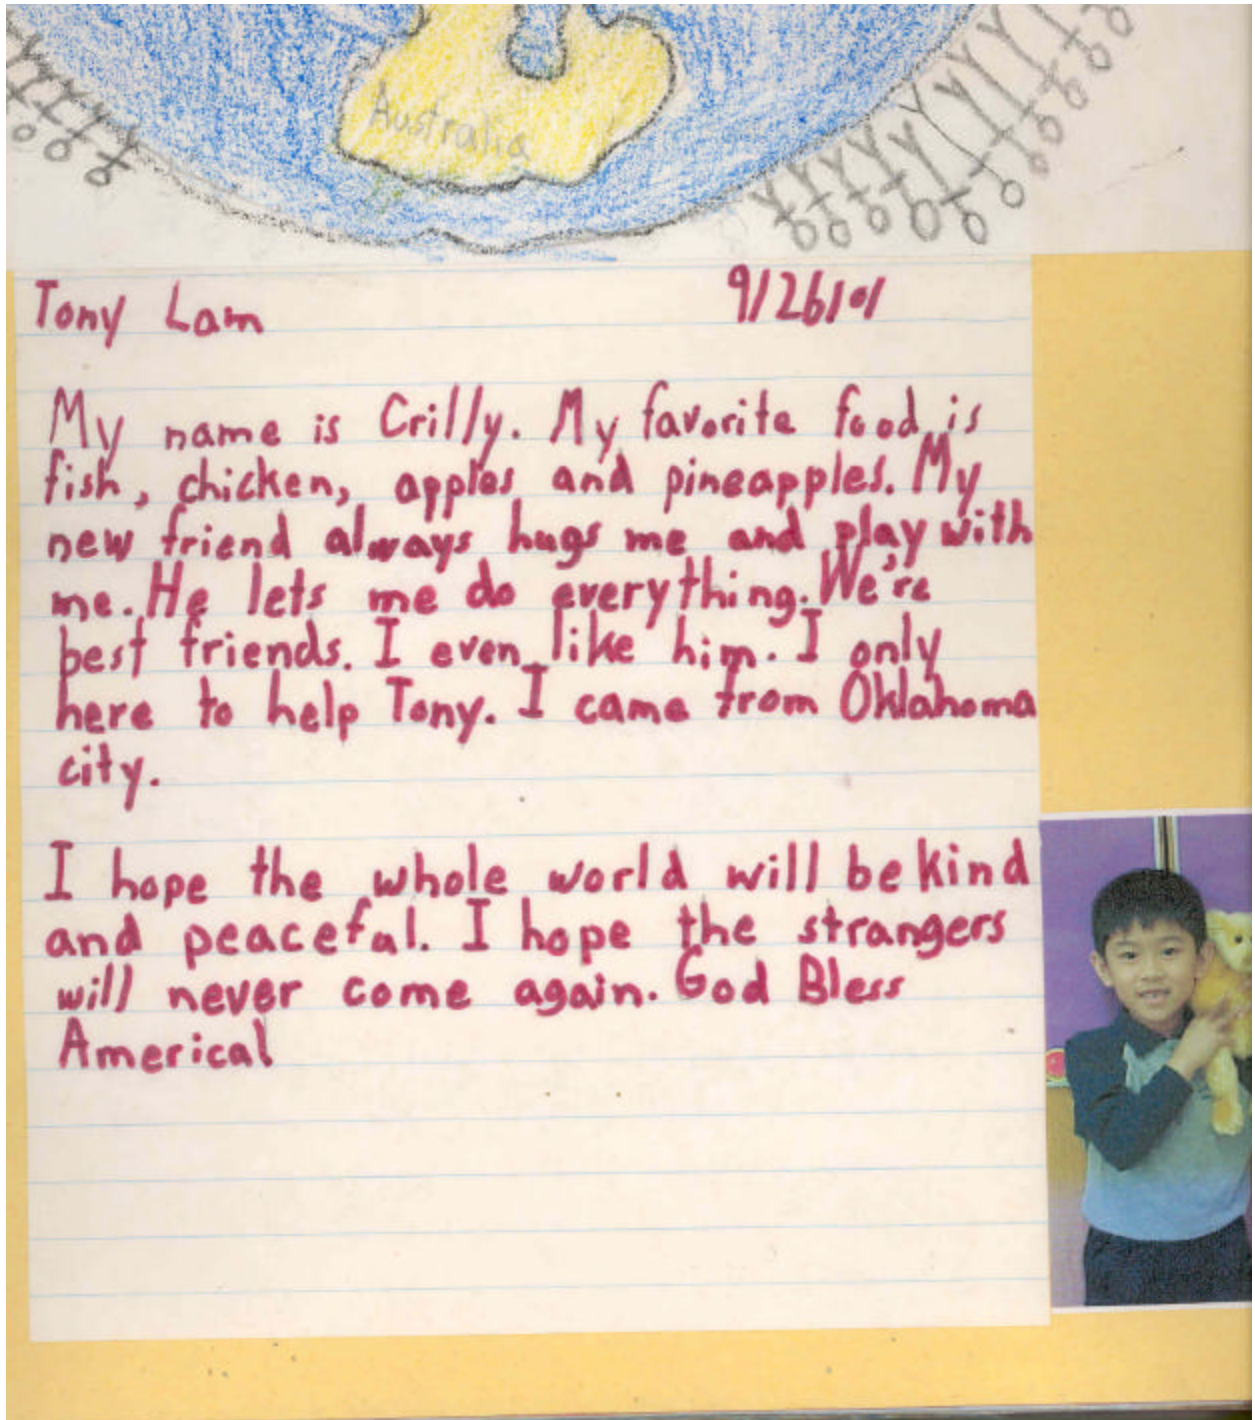 Australia
Tony Lam 9/26/01
My name is Crilly. My favorite food is
fish, chicken, apples and pineapples. My
new friend always hugs me and play with
me. He lets me do everything. We're
best friends. I even like him. I only
here to help Tony. I came from Oklahoma
city.
I hope the whole world will be kind
and peaceful. I hope the strangers
will never come again. God Bless
America!